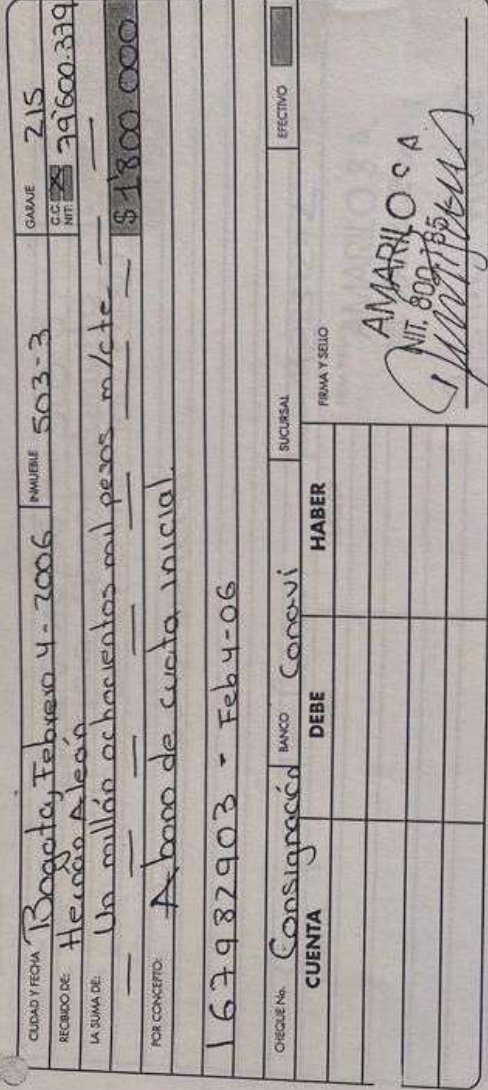 CIUDAD Y FECHA Bogota, Febrero 4 - 2006 INMUEBLE 503-3 GARAJE 215
RECIBIDO DE: Hernán Aleón C.C. NIT: 79'600.379
LA SUMA DE: Un millón ochocientos mil pesos m/cte
$ 1'800.000
POR CONCEPTO: Abono de cuota inicial.
167982903 - Feb 4-06
CHEQUE No. Consignación BANCO Conavi SUCURSAL EFECTIVO
CUENTA DEBE HABER FIRMA Y SELLO
AMARILO S A
NIT. 800.185